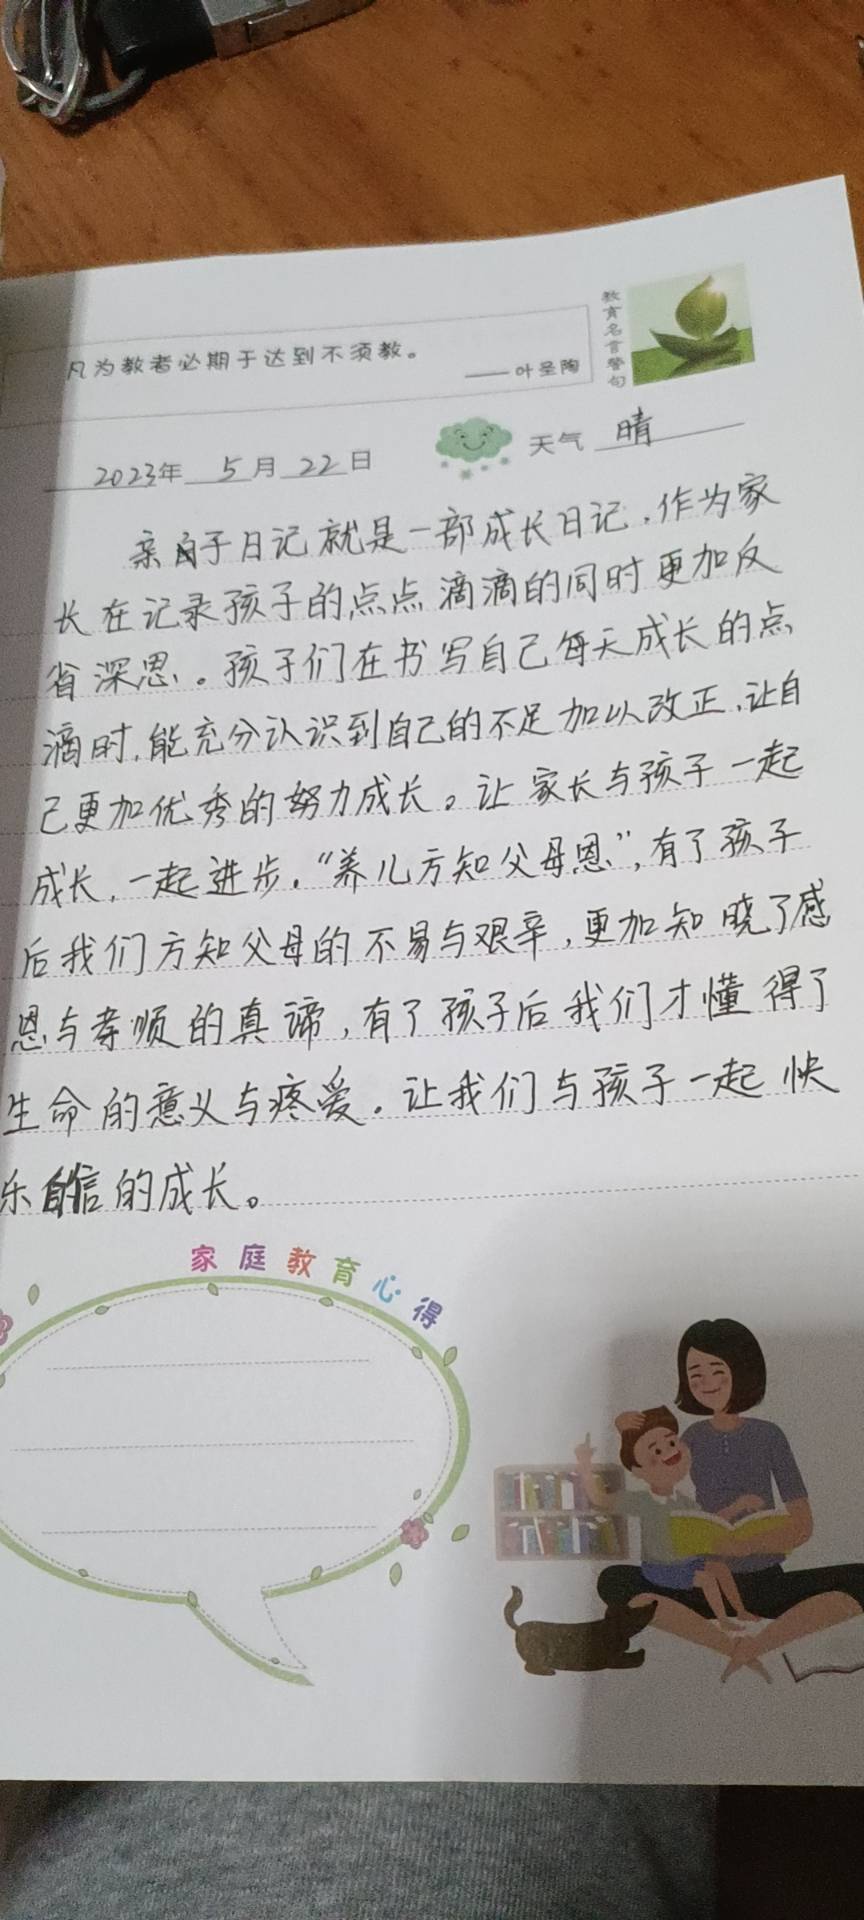 凡为教者必期于达到不须教。
——叶圣陶
教育名言警句
2023年 5月 22日
天气 晴
亲子日记就是一部成长日记,作为家
长在记录孩子的点点滴滴的同时更加反
省深思。孩子们在书写自己每天成长的点
滴时,能充分认识到自己的不足加以改正,让自
己更加优秀的努力成长。让家长与孩子一起
成长,一起进步,“养儿方知父母恩”,有了孩子
后我们方知父母的不易与艰辛,更加知晓了感
恩与孝顺的真谛,有了孩子后我们才懂得了
生命的意义与疼爱。让我们与孩子一起快
乐自信的成长。
家庭教育心得